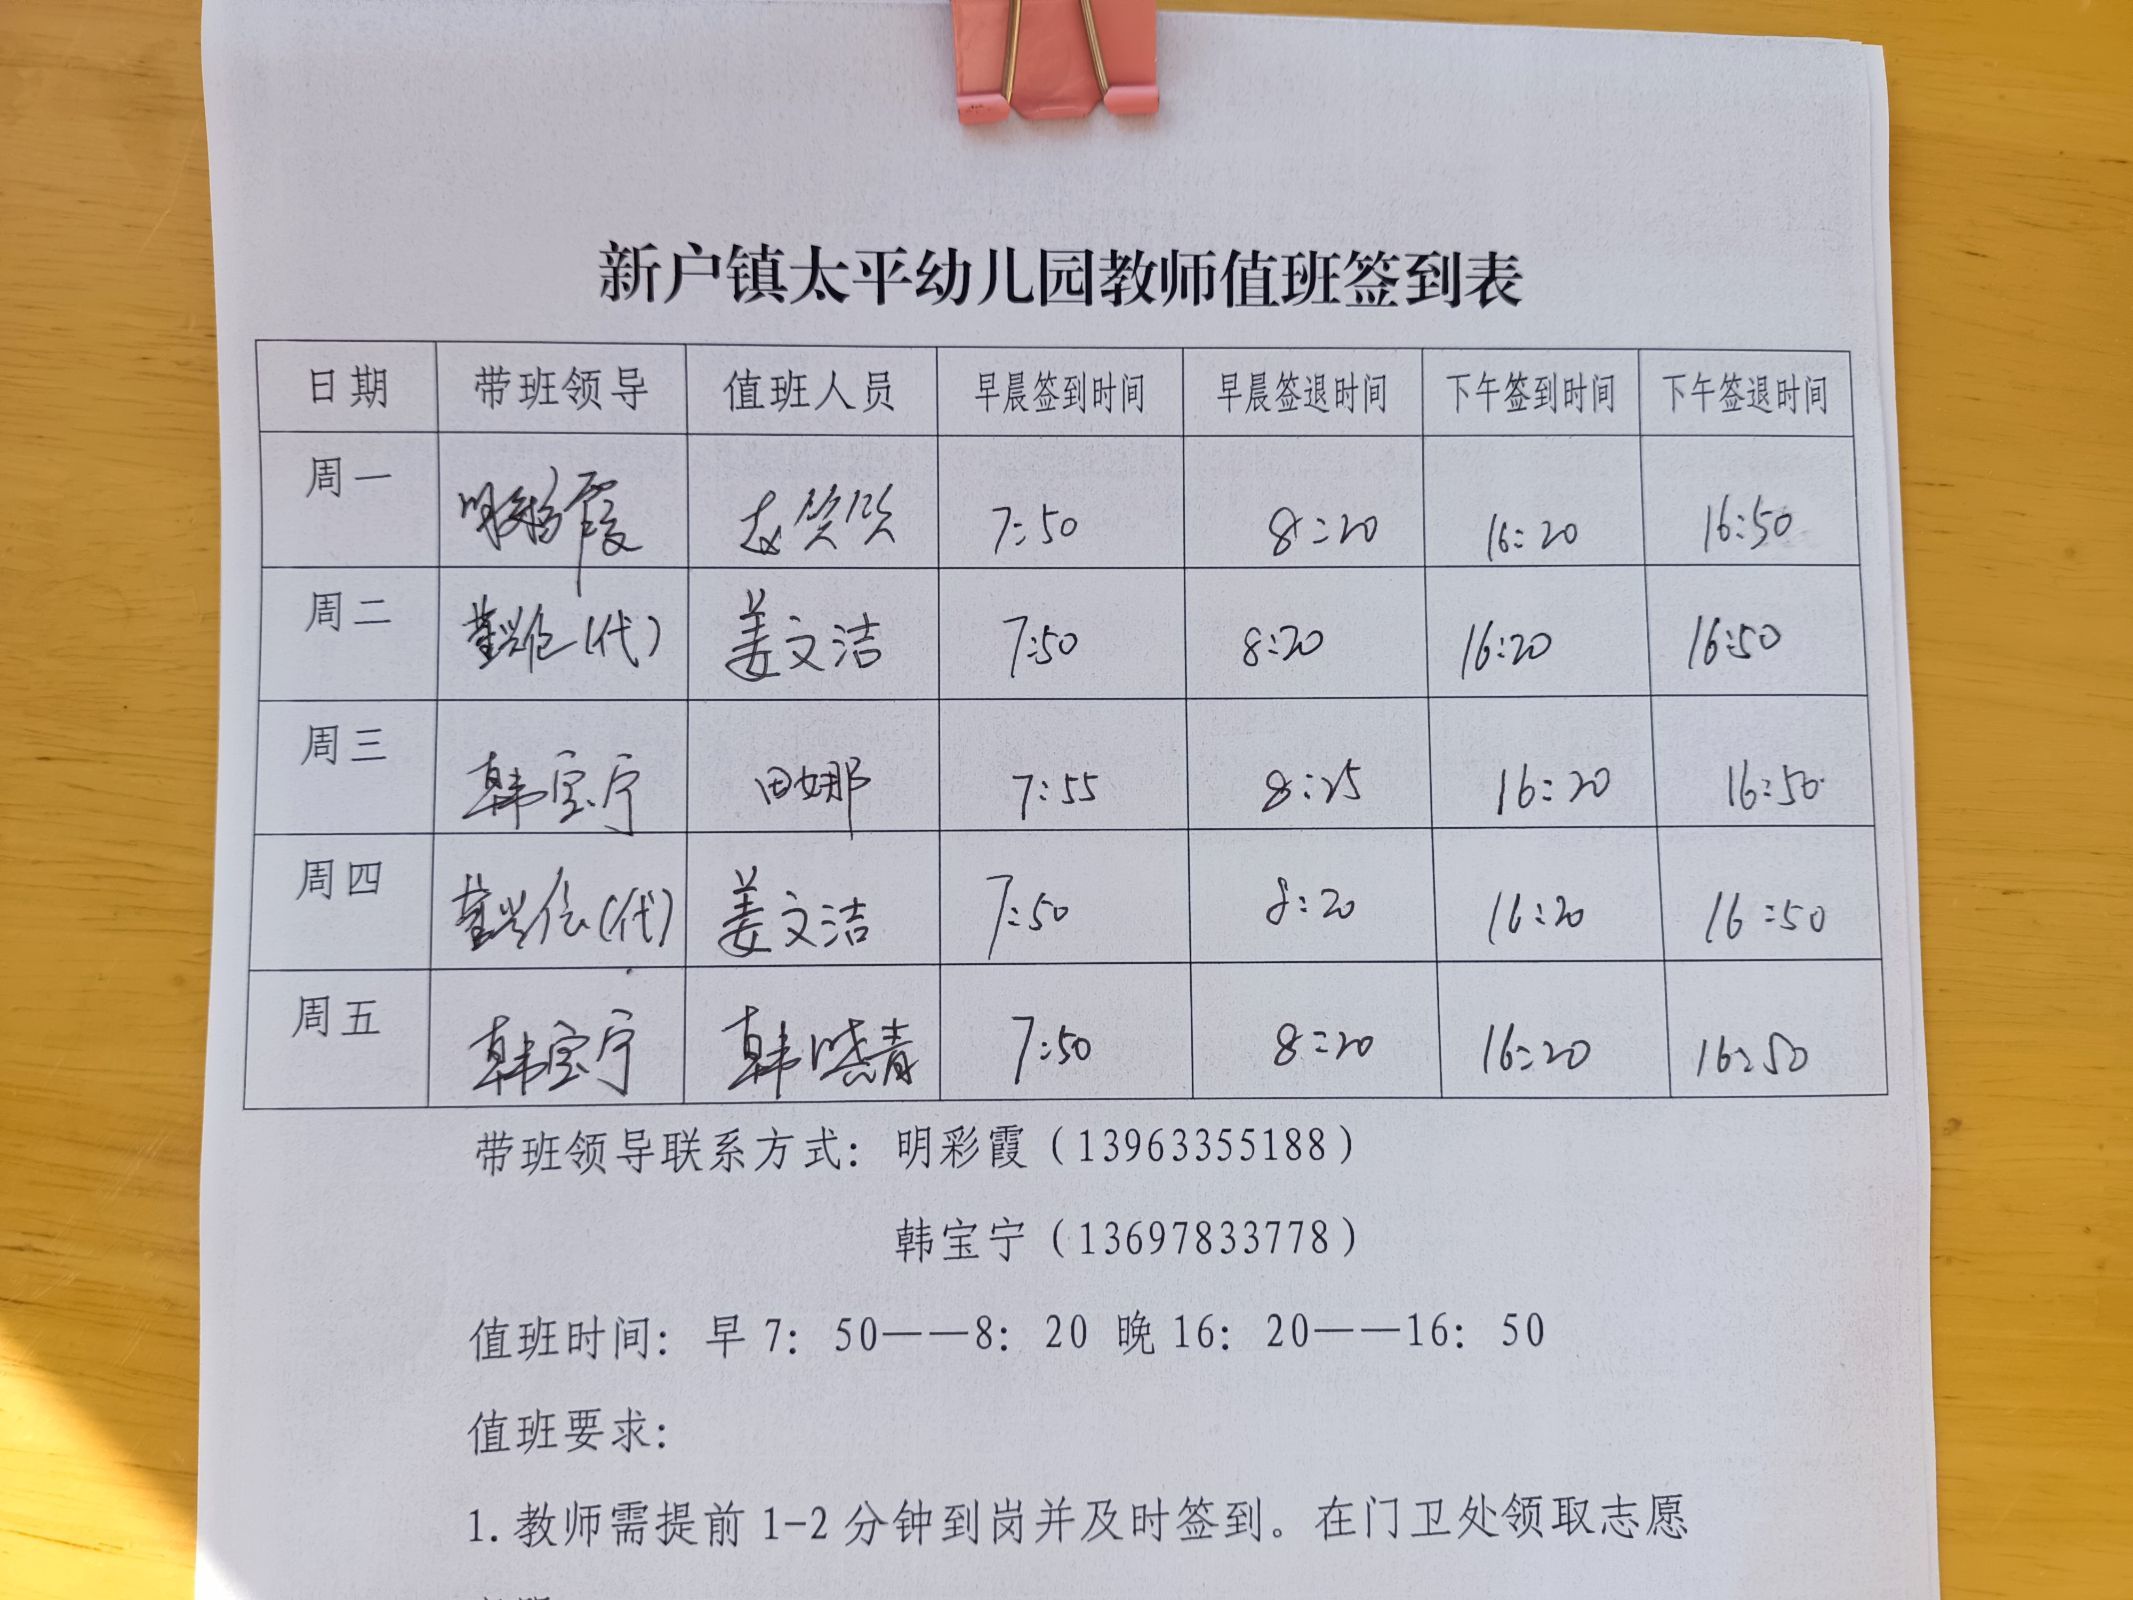 新户镇太平幼儿园教师值班签到表
日期 带班领导 值班人员 早晨签到时间 早晨签退时间 下午签到时间 下午签退时间
周一 明彩霞 7:50 8:20 16:20 16:50
周二 (代) 姜文洁 7:50 8:20 16:20 16:50
周三 韩宝宁 田娜 7:55 8:25 16:20 16:50
周四 (代) 姜文洁 7:50 8:20 16:20 16:50
周五 韩宝宁 韩晓青 7:50 8:20 16:20 16:50
带班领导联系方式：明彩霞（13963355188）
韩宝宁（13697833778）
值班时间：早7：50——8：20 晚16：20——16：50
值班要求：
1.教师需提前1-2分钟到岗并及时签到。在门卫处领取志愿